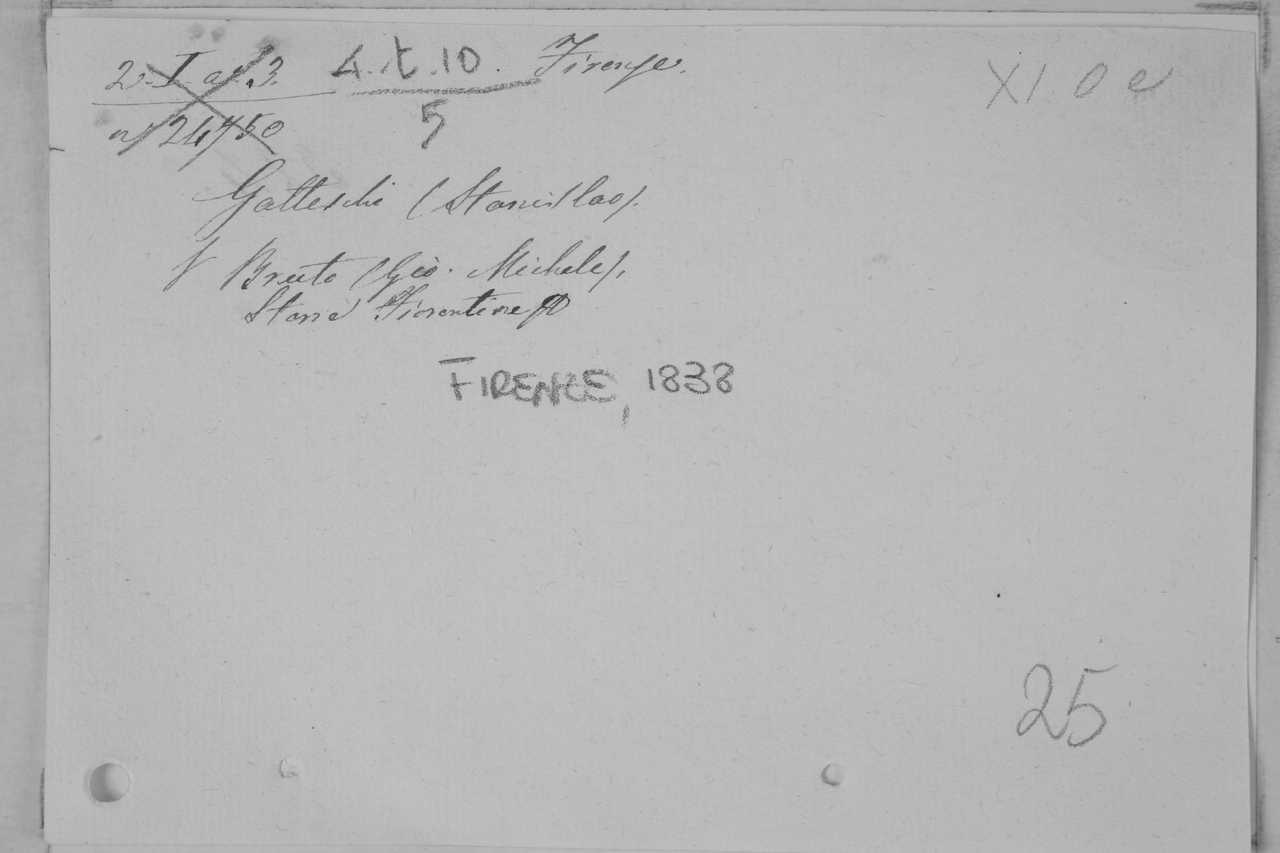 2. I. a. 3. 4. t. 10. Firenze. XI 0 e
n/ 24750 5
Gatteschi (Stanislao).
f Bruto (Gio. Michele),
Storie Fiorentine
FIRENZE, 1838
25